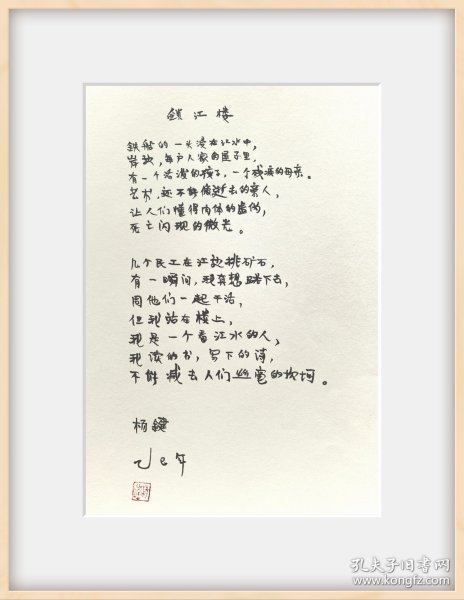 锁江楼
铁船的一头浸在江水中,
岸边,每户人家的屋子里,
有一个活泼的孩子,一个残废的母亲。
艺术,还不能像逝去的亲人,
让人们懂得肉体的虚伪,
死亡闪现的微光。
几个民工在江边挑矿石,
有一瞬间,我真想踏下去,
同他们一起干活,
但我站在楼上,
我是一个看江水的人,
我读的书,写下的诗,
不能减去人们丝毫的坎坷。
杨键
乙巳年
孔夫子旧书网
www.kongfz.com